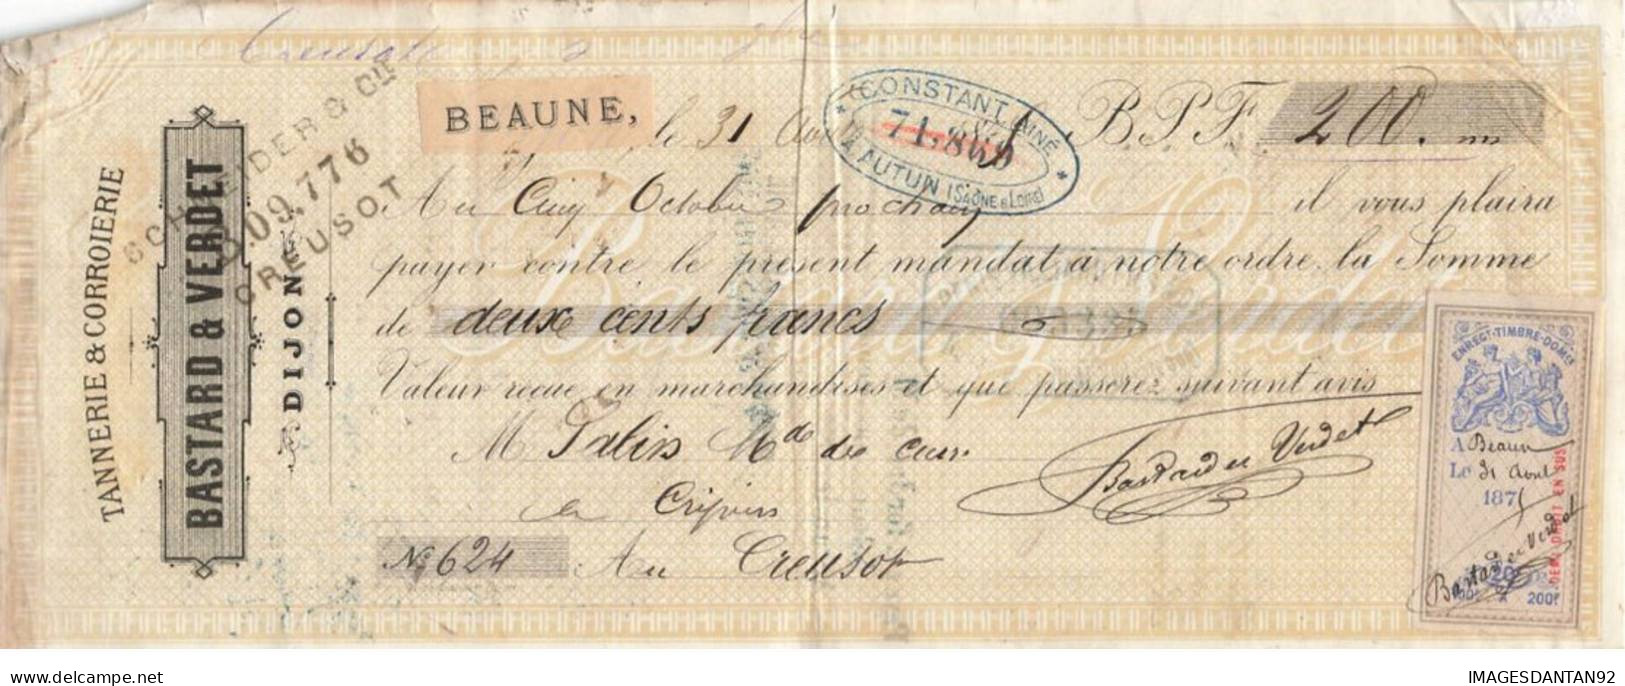 Creusot
TANNERIE & CORROIERIE
BASTARD & VERDET
DIJON
SCHNEIDER & CIE
3.09.776
CREUSOT
BEAUNE,
le 31 Août
CONSTANT AINÉ
71.868
A AUTUN (SAÔNE & LOIRE)
B.P.F. 200.
Au Cinq Octobre prochain il vous plaira
payer contre le présent mandat à notre ordre la Somme
de deux cents francs
Valeur reçue en marchandises et que passerez suivant avis
M Salin Md de cuir
en Crépins
Bastard et Verdet
No 624 Au Creusot
ENREGT-TIMBRE-DOMES
A Beaune
Le 31 Aout
1875
DEMI DROIT EN SUS
Bastard et Verdet
100f à 200f
www.delcampe.net
IMAGESDANTAN92